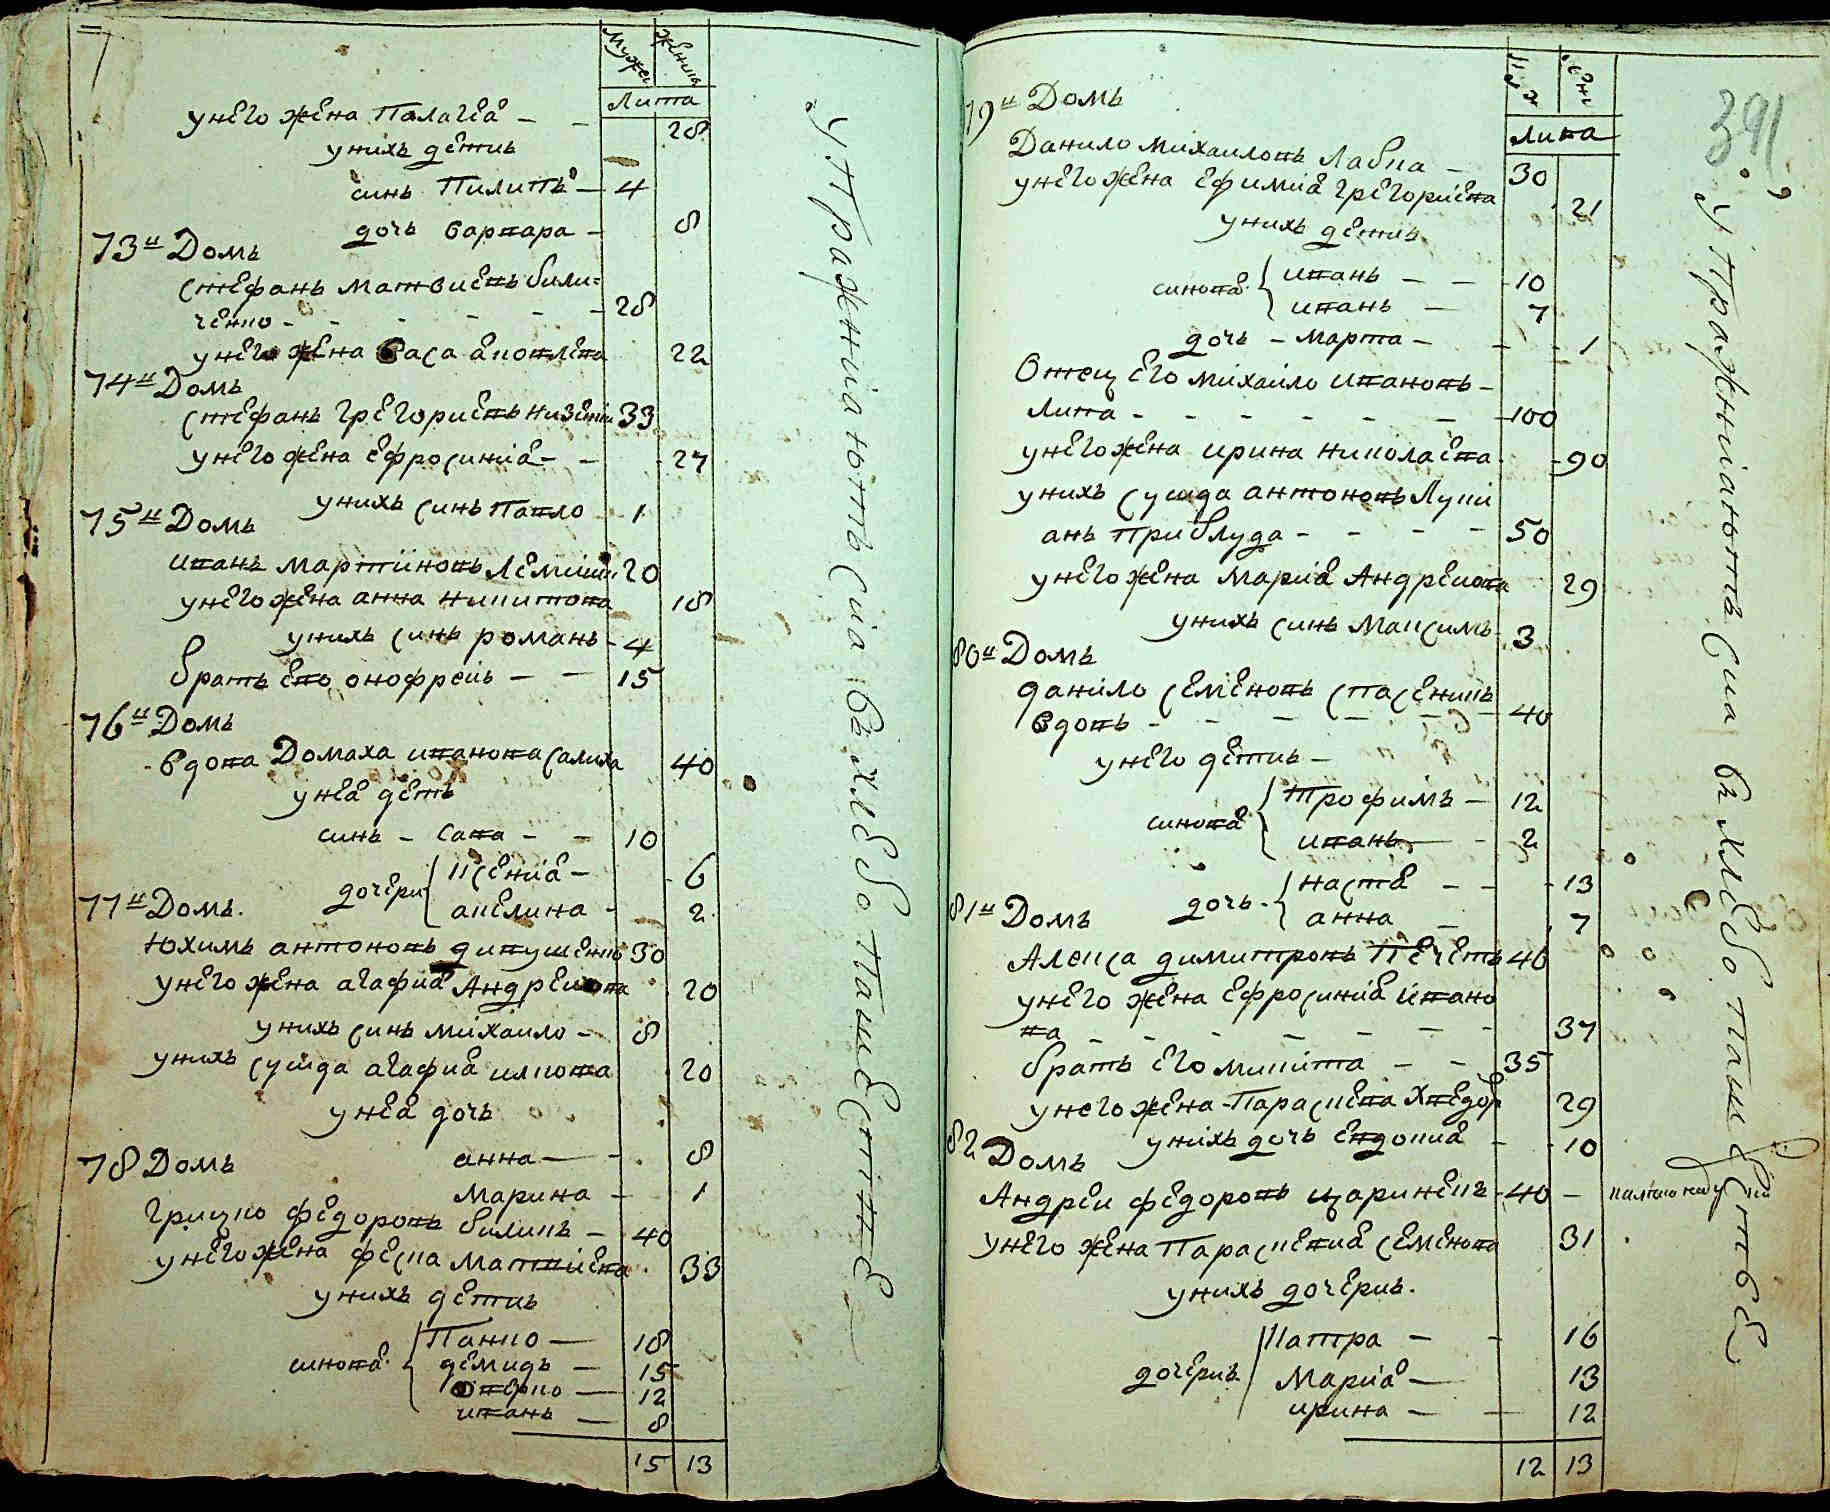 Мужс женпъ
Лита
унего жена Палагеа - - 28
унихъ детиь
синь Пилипъ - 4
дочь Варвара - 8
73й Домъ
Стефань Матвиевь били=
ченко - - - - - - 28
унего жена Васа
22
74й Домъ
Стефань Грегориевь 33
унего жена Ефросиниа - - 27
унихъ синь Павло 1
75й Домъ
Иванъ Мартиновь 20
унего жена анна никитова 18
унихъ синь романь - 4
братъ его онофреиь - - 15
76й Домъ
Вдова Домаха иванова 40
унеа деть
синь - Сава - - 10
дочери Ксениа - 6
акелина - 2
77й Домъ.
Юхимь антоновь 30
унего жена агафиа Андреиова 20
унихъ синь михаило - 8
унихъ сушда агафиа 20
унеа дочь
78 Домъ
анна - - 8
Марина - 1
Грицко федоровь биликь - 40
унего жена феска матвиева 33
унихъ детиь
синова Панко - 18
демидь - 15
12
ивань - 8
15 13
упражниаютьсиа въ хлебопашестве
391
79й Домъ
Лита
Данило михаиловь Лабка - 30
унего жена ефимиа грегориева 21
унихъ детиь
синова ивань - - 10
ивань - 7
дочь - марта - - 1
Отец его михаило ивановь -
Лита - - - - - - 100
унего жена ирина николаева 90
унихъ сушда антоновь Луки
ань Приблуда - - - - 50
унего жена Мариа Андреиова 29
унихъ синь Максимъ 3
80й Домъ
данило семеновь
Вдовь - - - - - - 40
унего детиь -
синова трофимъ - 12
ивань - 2
дочь - настя - - 13
анна - 7
81й Домъ
Алекса димитровь Печеть 46
унего жена ефросиниа ивано
ва - - - - - - 37
братъ его микита - - 35
унего жена - Параскева Хведор 29
унихъ дочь евдокиа - 10
82 Домъ
Андреи федоровь 40 -
унего жена Параскевиа семенова 31
унихъ дочериь.
дочериь Натра - - 16
Мариа - 13
ирина - - 12
12 13
упражниаютьсиа въ хлебопашестве